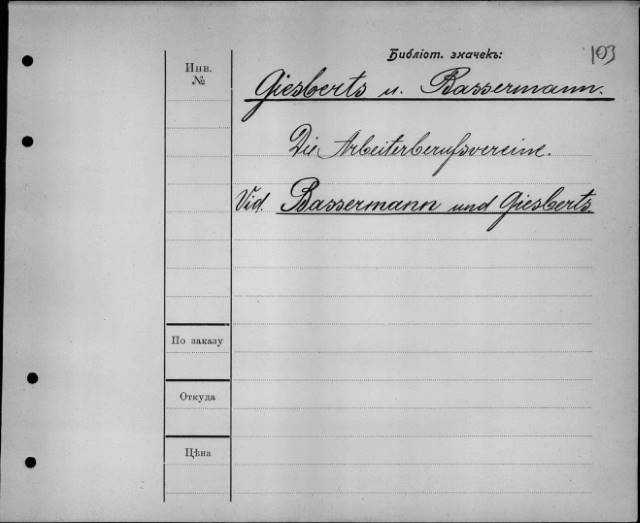 Библіот. значекъ:
103
Инв.
№
Giesberts u. Bassermann.
Die Arbeiterberufsvereine.
Vid. Bassermann und Giesberts.
По заказу
Откуда
Цѣна